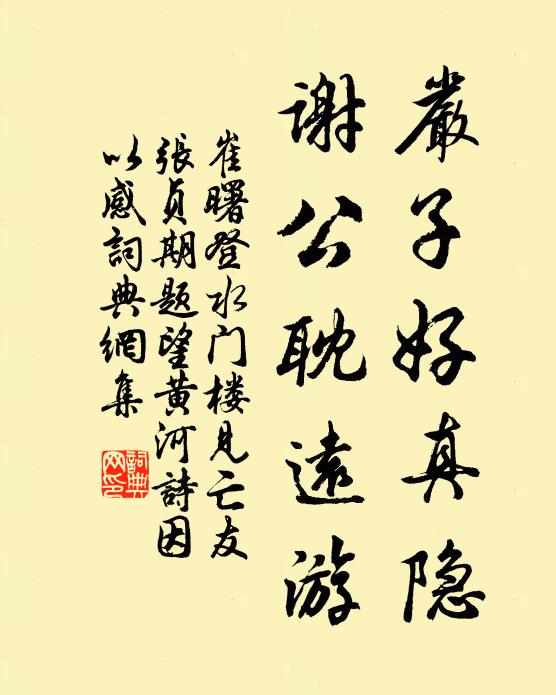 嚴子好真隐
谢公耽遠游
崔曙登水门楼見亡友
張貞期题望黄河詩因
以感詞典網集
詞典网印